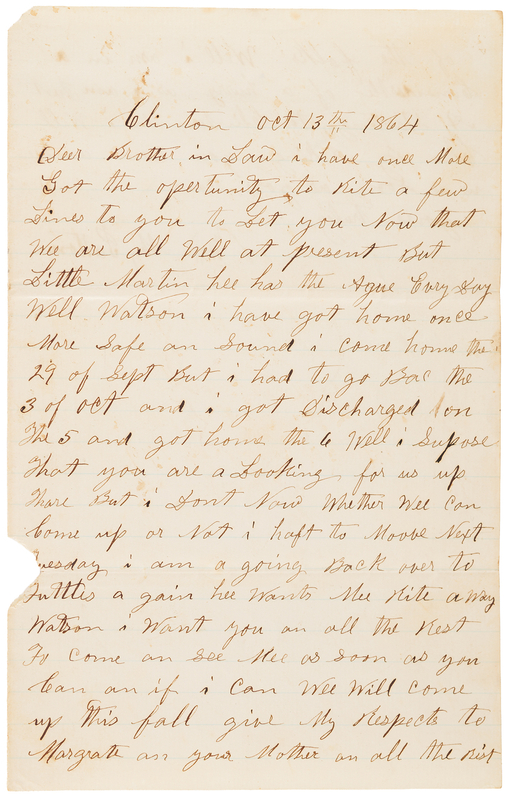 Clinton Oct 13th 1864
Deer Brother in Law i have once More
Got the opertunity to Rite a few
Lines to you to Let you Now that
Wee are all Well at present But
Little Martin hee has the Ague Evry Day
Well Watson i have got home once
More Safe an Sound i come home the
29 of Sept But i had to go Bac the
3 of oct and i got Discharged on
The 5 and got home the 6 Well i Supose
That you are a Looking for us up
Thare But i Dont Now Whether Wee Can
Come up or Not i haft to Moove Next
Tuesday i am a going Back over to
Tuttles a gain hee Wants Mee Rite a Way
Watson i Want you an all the Rest
To come an See Mee as Soon as you
Can an if i Can Wee Will come
up This fall give My Respects to
Margrate an your Mother an all the Rest